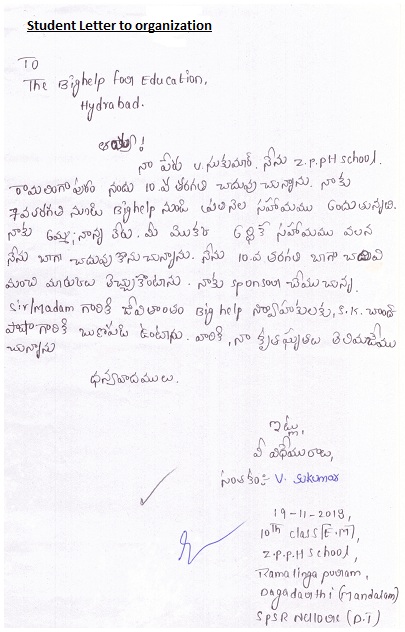 Student Letter to organization
TO
The Bighelp for Education,
Hydrabad.
నా పేరు V. సుకుమార్. నేను Z.P.PH School.
రామలింగాపురం నందు 10.వ తరగతి చదువు చున్నాను. నాకు
7వ తరగతి నుండి Bighelp నుండి ప్రతినెల సహాయము అందుతున్నది.
నాకు అమ్మ, నాన్న లేరు. మీ మొక్క సహాయము వలన
నేను బాగా చదువు కొనుచున్నాను. నేను 10.వ తరగతి బాగా చదివి
మంచి మార్కులు తెచ్చుకొంటాను. నాకు sponsor చేయుచున్న
Sir/Madam గారికి జీవితాంతం Big help నిర్వాహకులకు, S.K. చాంద్
పాషా గారికి ఋణపడి ఉంటాను. వారికి, నా కృతఘ్నతలు తెలియజేయు
చున్నాను
ధన్యవాదములు.
ఇట్లు,
మీ విధేయురాలు,
సంతకం:- V. Sukumar
19-11-2019,
10th class [E.M],
Z.P.P.H School,
Ramalinga puram,
Dagadarthi (Mandalam)
SPSR Nellore (D.T)